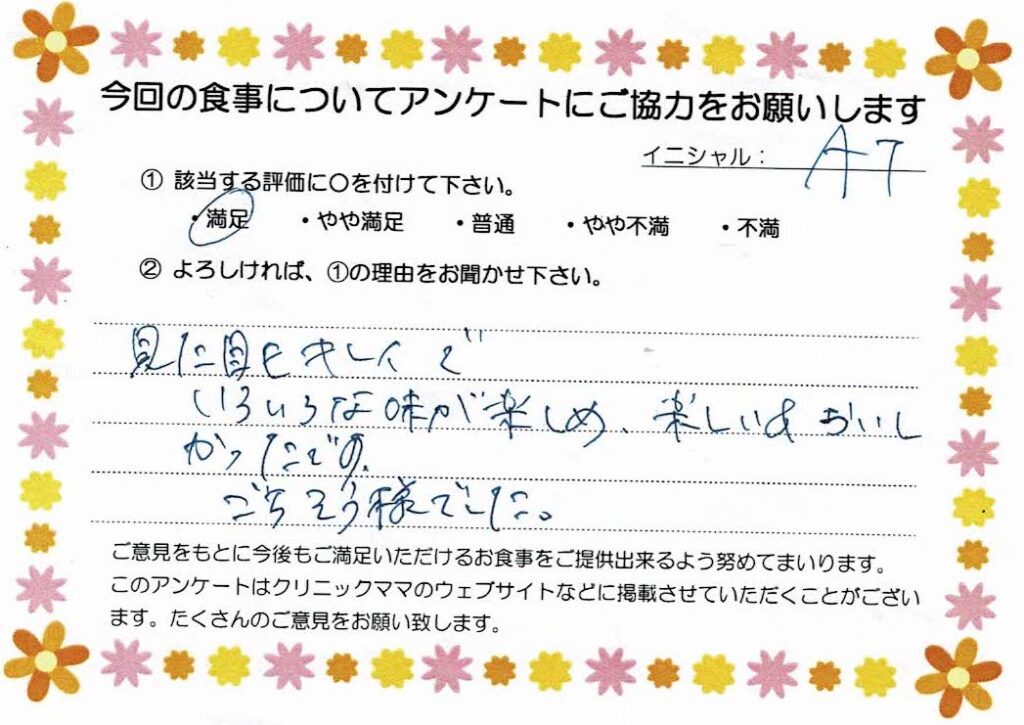 今回の食事についてアンケートにご協力をお願いします
イニシャル： A T
① 該当する評価に○を付けて下さい。
・満足 ・やや満足 ・普通 ・やや不満 ・不満
② よろしければ、①の理由をお聞かせ下さい。
見た目もキレイで
いろいろな味が楽しめ、楽しい おいし
かったです。
ごちそう様でした。
ご意見をもとに今後もご満足いただけるお食事をご提供出来るよう努めてまいります。
このアンケートはクリニックママのウェブサイトなどに掲載させていただくことがござい
ます。たくさんのご意見をお願い致します。